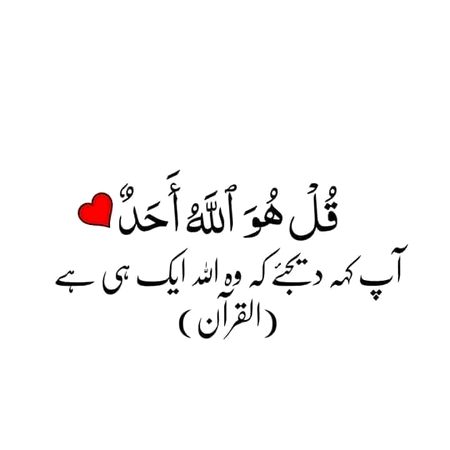 قُلْ هُوَ ٱللَّهُ أَحَدٌ
آپ کہہ دیجئے کہ وہ اللہ ایک ہی ہے
(القرآن)